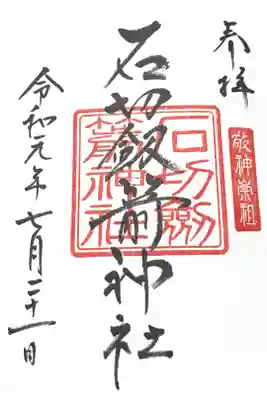 奉拝
敬神崇祖
石切劔箭神社
石切劔
箭神社
令和元年七月二十一日